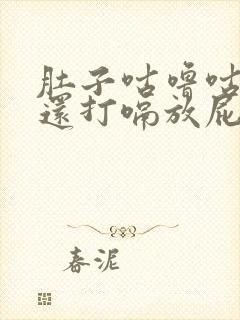 肚子咕噜咕
還打嗝放屁
春泥